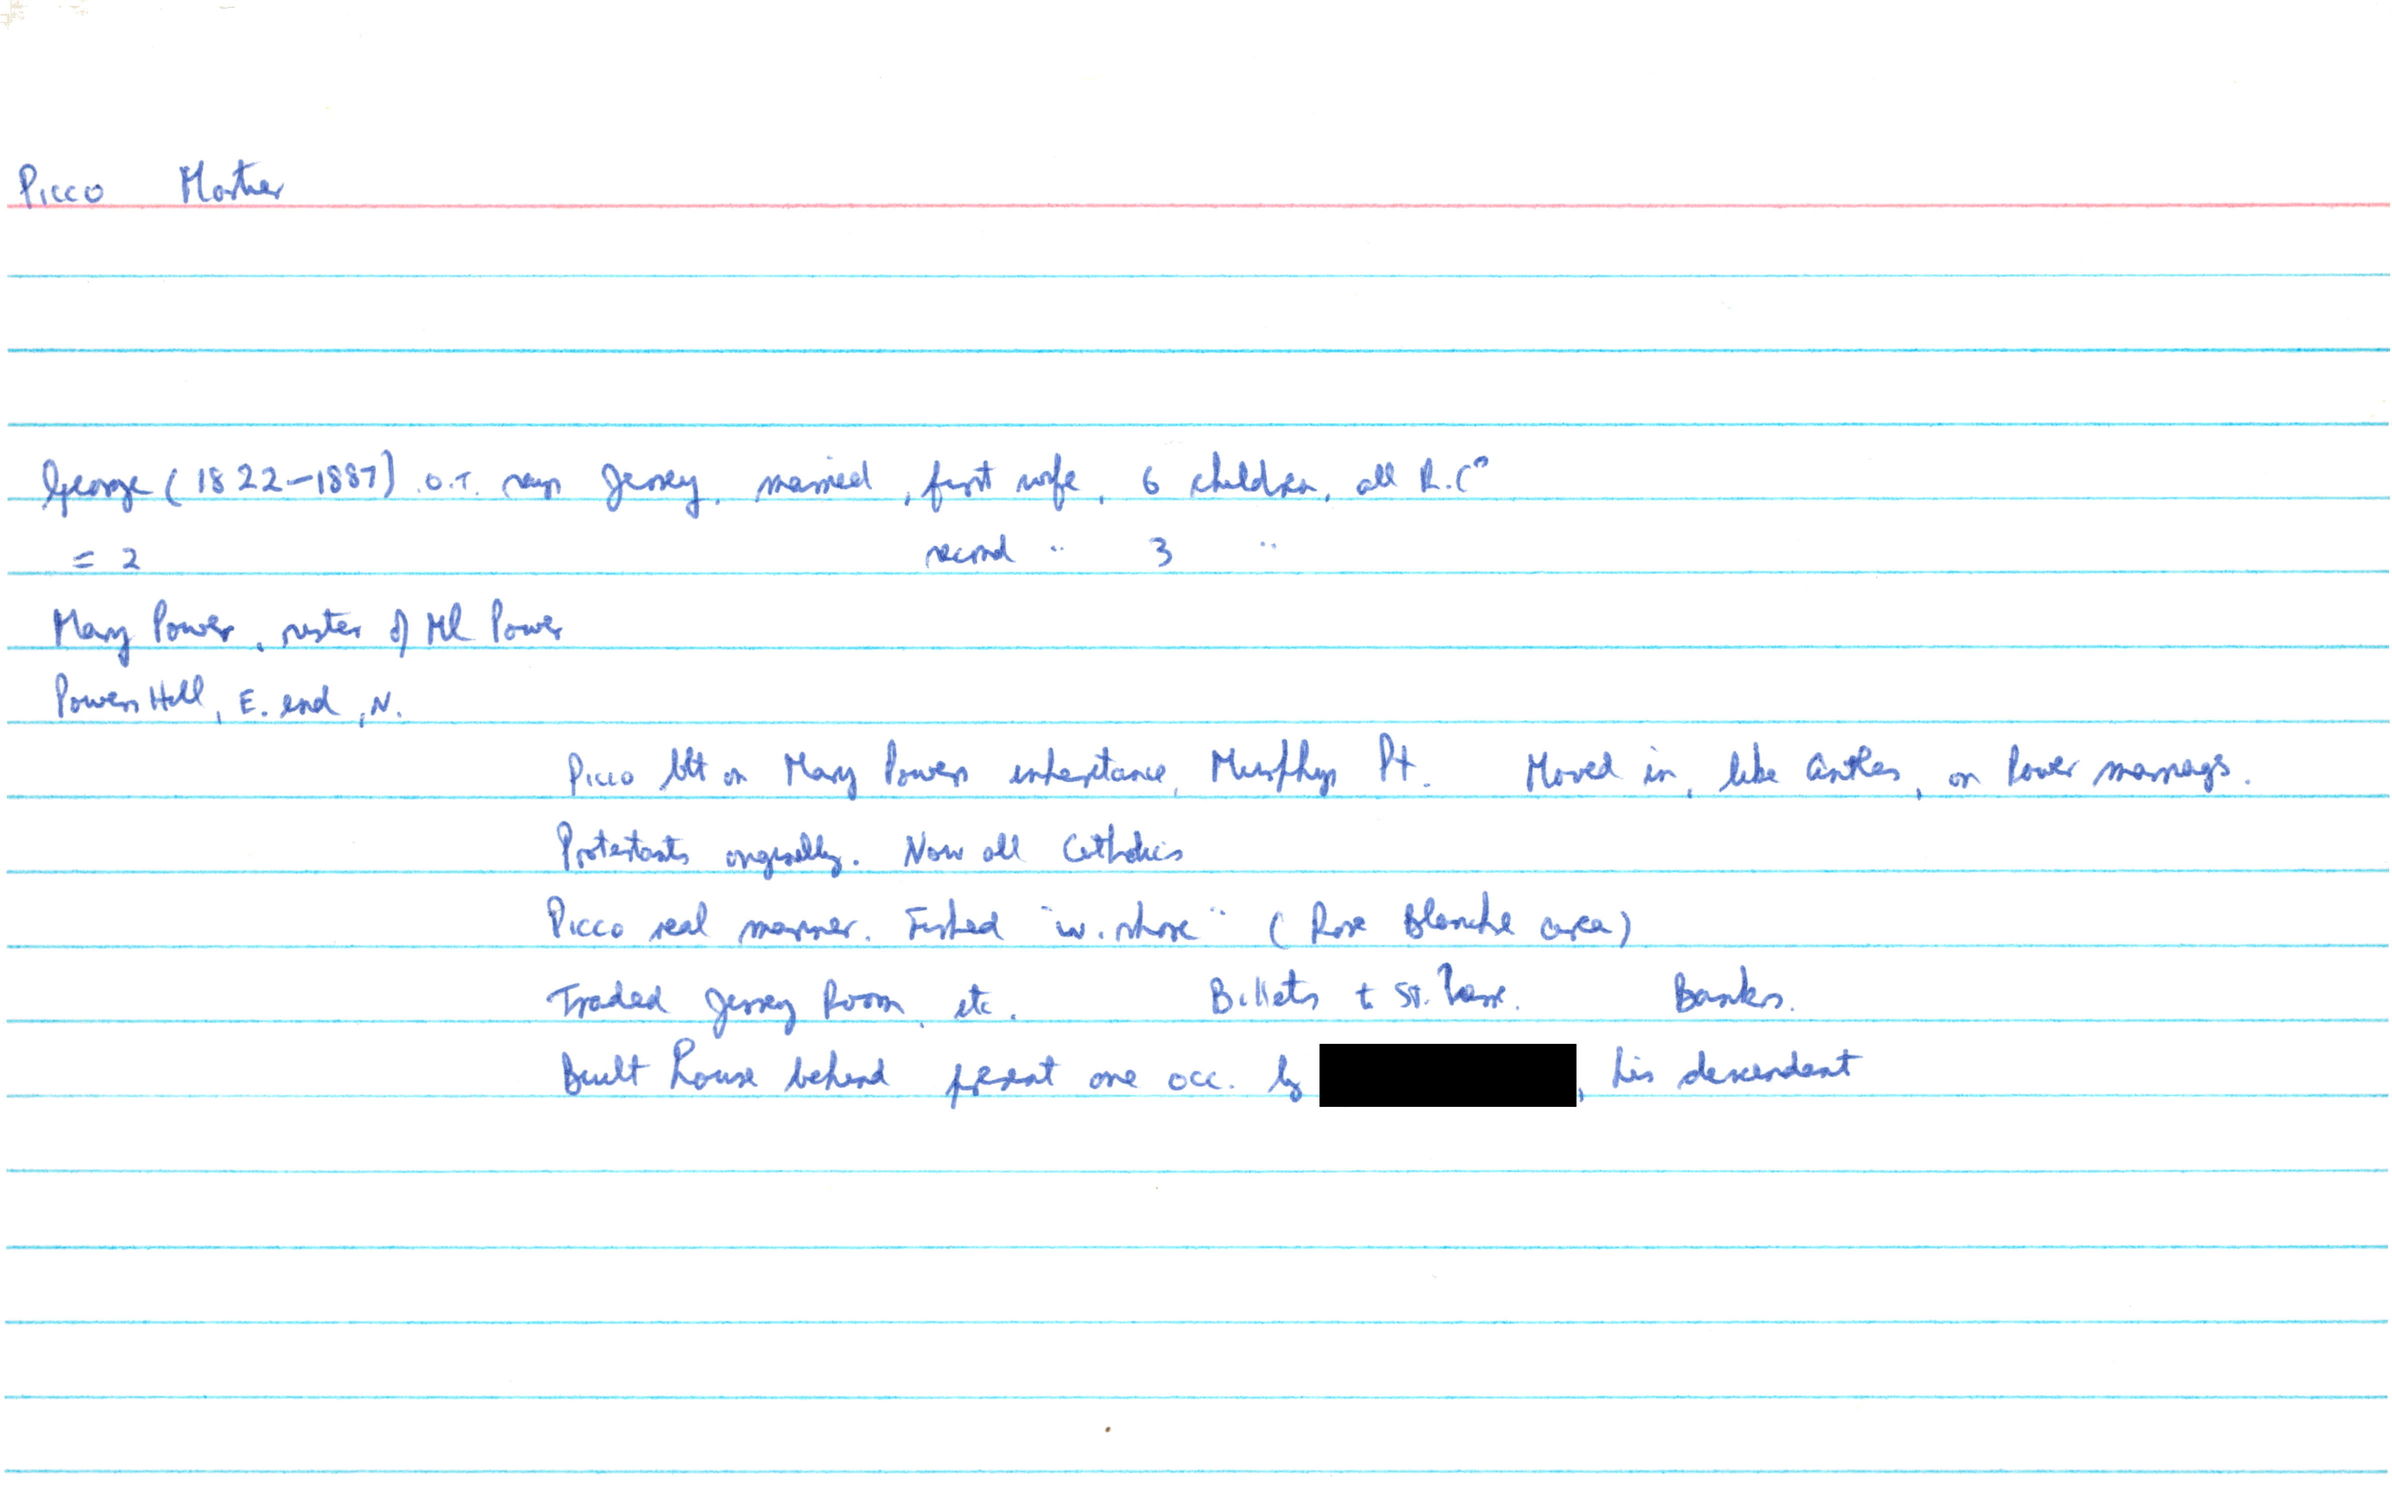 Picco Mortier
George (1822-1887) O.T. says Jersey, married, first wife, 6 children, all R.Cs
= 2 second " 3 "
Mary Power, sister of Ml Power
Powers Hill, E. end, N.
Picco blt on Mary Powers inheritance, Murphys Pt. Moved in, like Antles, on Power marriage.
Protestants originally. Now all Catholics
Picco real mariner. Fished "w. shore" (Rose Blanche area)
Traded Jersey Room, etc. Billets to St. Pierre. Bankers.
Built house behind present one occ. by , his descendant